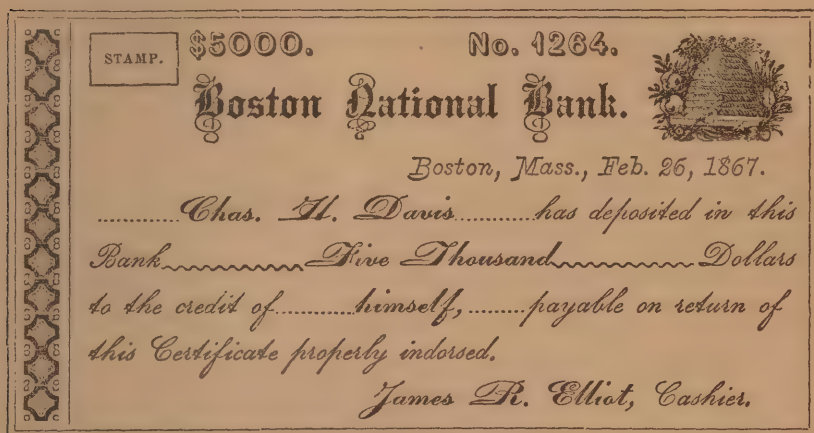 STAMP. $5000. No. 1264.
Boston National Bank.
Boston, Mass., Feb. 26, 1867.
Chas. H. Davis has deposited in this
Bank Five Thousand Dollars
to the credit of himself, payable on return of
this Certificate properly indorsed.
James R. Elliot, Cashier.